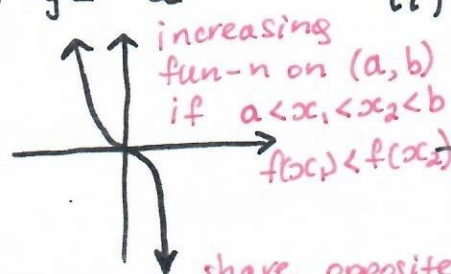 increasing
fun-n on (a, b)
if a<x₁<x₂<b
f(x₁)<f(x₂)
share opposite